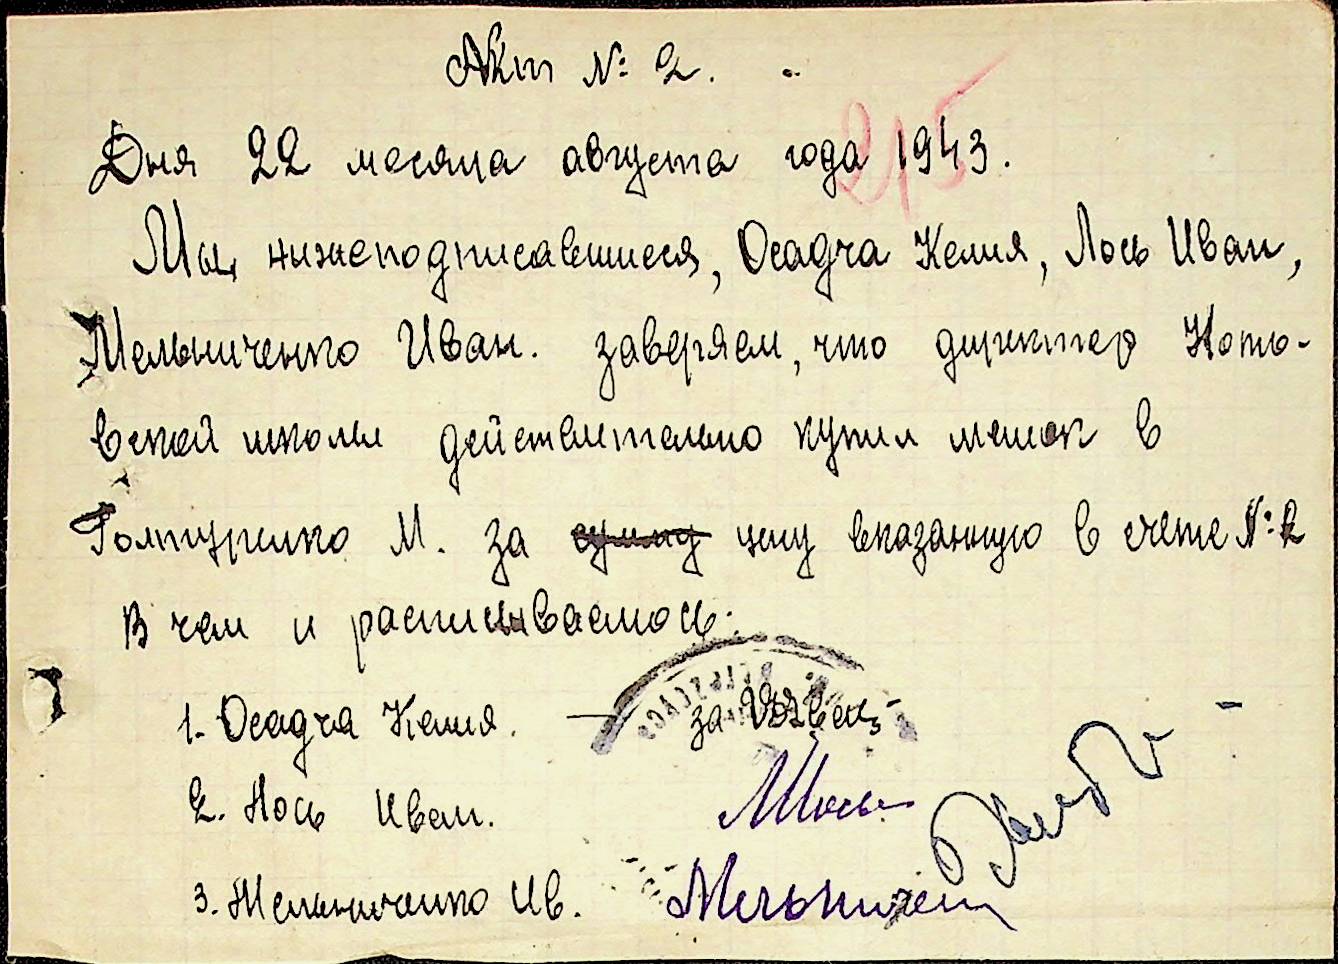 Акт № 2.
215
Дня 22 месяца августа года 1943.
Мы, нижеподписавшиеся, Осадча Келия, Лось Иван,
Мельниченко Иван. заверяем, что директор Кото-
вской школы действительно купил мешок в
Голтуренко М. за сумму цену вказанную в счете № 2
В чем и расписываемось.
1. Осадча Келия. — за
2. Нось Иван.
3. Мельниченко Ив. Мельничен